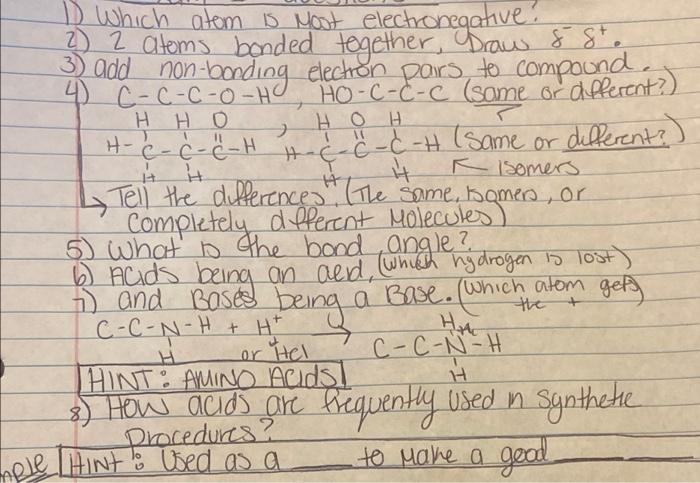 1) Which atom is Most electronegative?
2) 2 atoms bonded together, Draw δ⁻ δ⁺.
3) add non-bonding electron pairs to compound.
4) C-C-C-O-H, HO-C-C-C (same or different?)
H H O , H O H
H-C-C-C-H H-C-C-C-H (same or different?)
H H H H ↖ Isomers
↳ Tell the differences. (The same, isomers, or
completely different Molecules)
5) What is the bond angle?
6) Acids being an acid, (which hydrogen is lost)
7) and Bases being a Base. (which atom gets
the +
C-C-N-H + H⁺ → H
H or HCl C-C-N-H
H
HINT: AMINO ACIDS!
8) How acids are frequently used in synthetic
procedures?
HINT: Used as a ____ to make a good ____